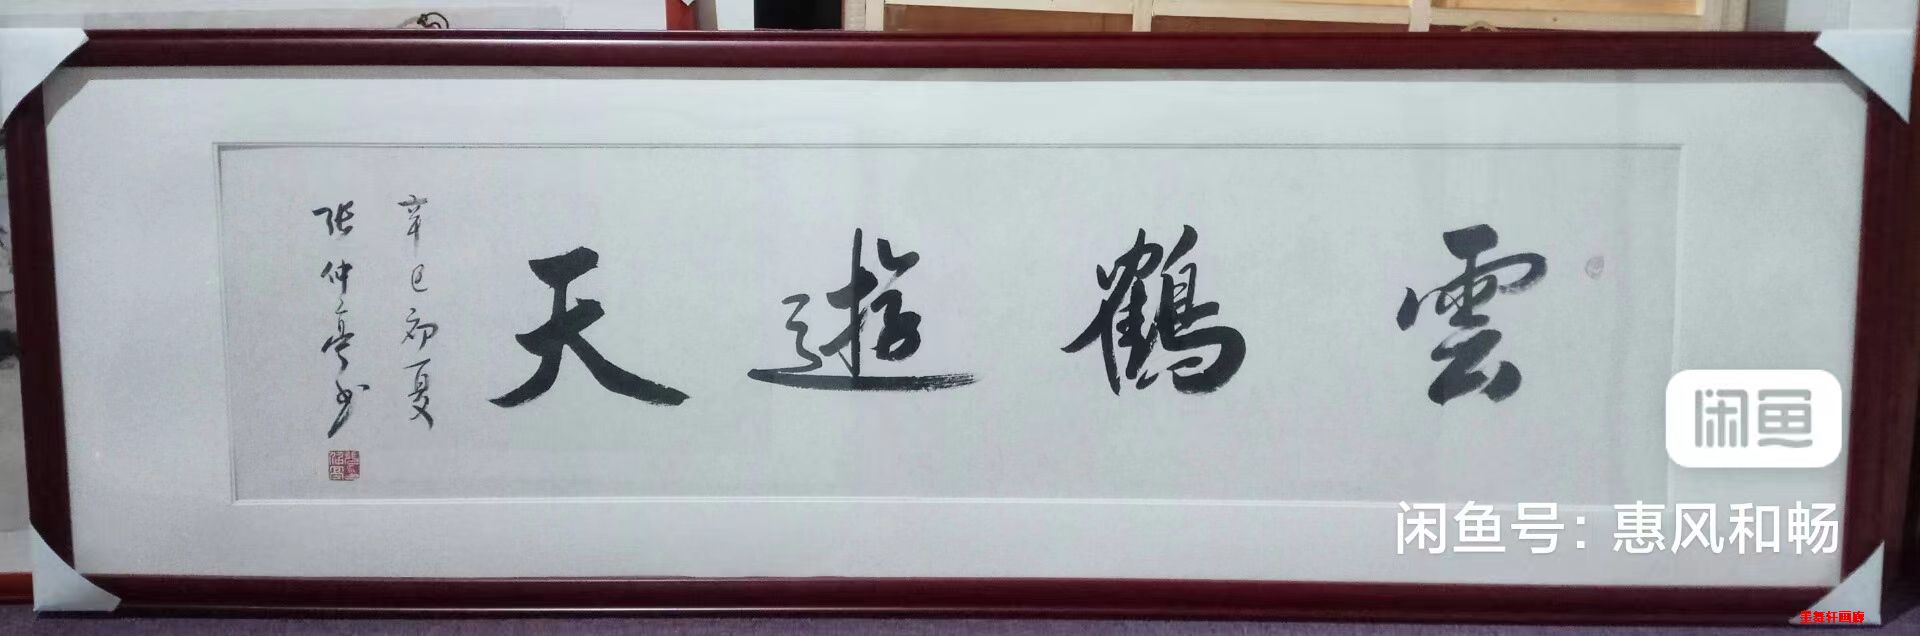 雲鶴遊天
辛巳初夏
张仲亭书
闲鱼
闲鱼号：惠风和畅
墨舞轩画廊